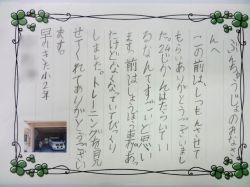 しょのみなさ
んへ
この前は、しつもんさせて
もらいありがとうございまし
た。24じかんはたらいてい
るなんてすごいと思い
ます。前はしょうぼう車があっ
たけどなくなっていてびっくり
しました。トレーニングを見
せてくれてありがとうござい
ます。
小2年